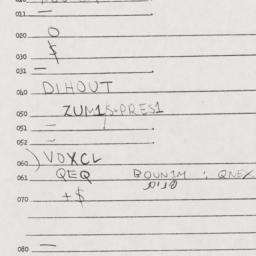 011 —
020 O
$
030
031 —
040 DIHOUT
050 ZUM1S+PRES1
051 —
052 —
060 ) VOXCL
061 QEQ BOUN1M : QNEX
070 +$
080 —